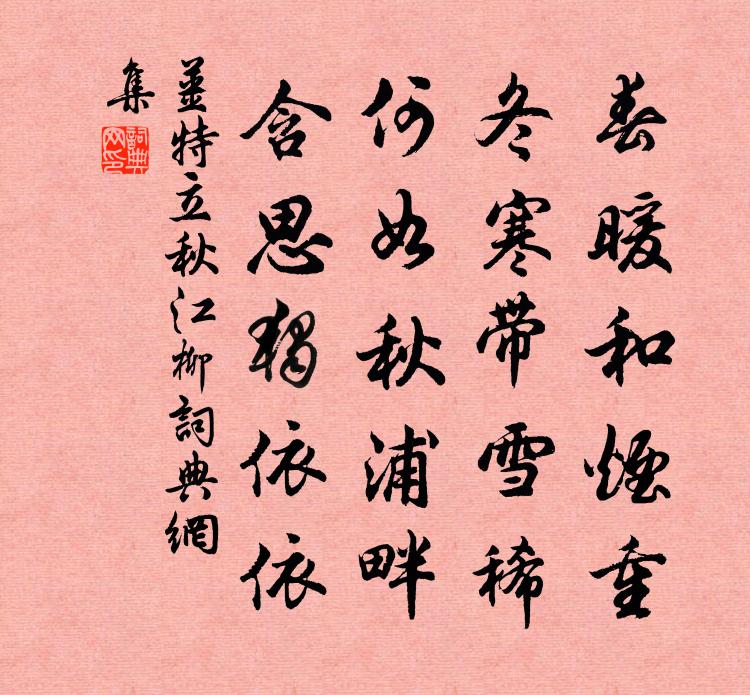 春暖和煙重
冬寒帶雪稀
何如秋浦畔
含思獨依依
姜特立秋江柳詞典網
集
詞典
网印